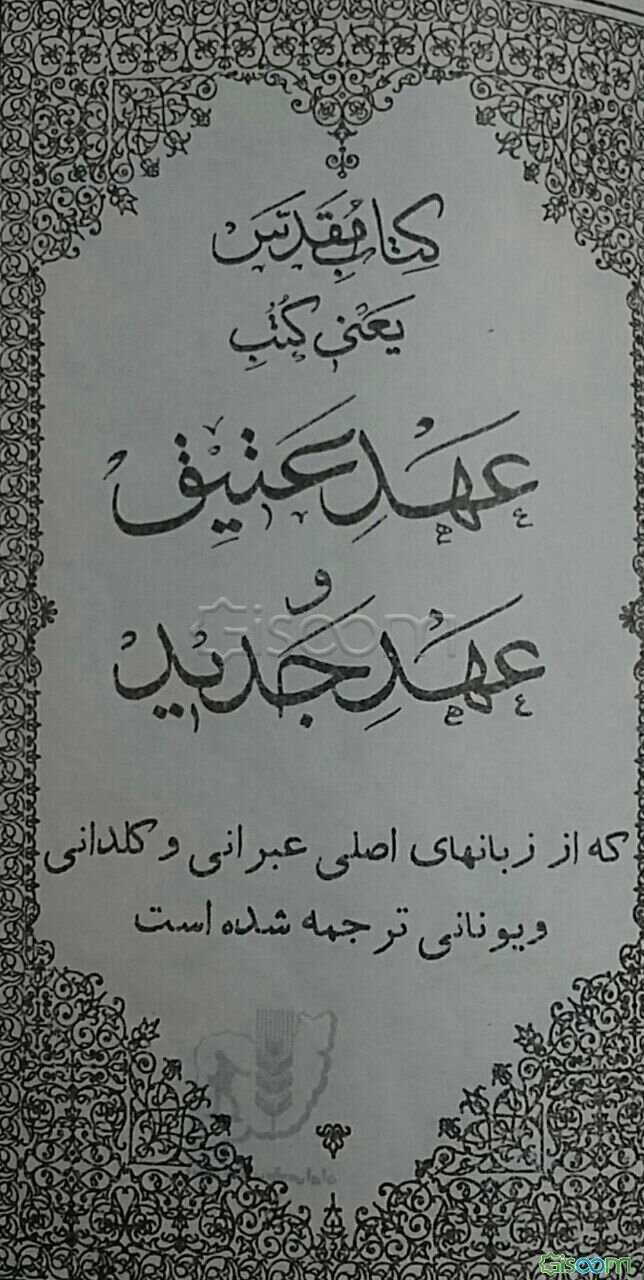 کِتابِ مُقَدَّس
یَعنی کُتُبِ
عَهدِ عَتیق
و
عَهدِ جَدید
که از زبانهای اصلی عبرانی و کلدانی
و یونانی ترجمه شده است
Gisoom
Gisoom